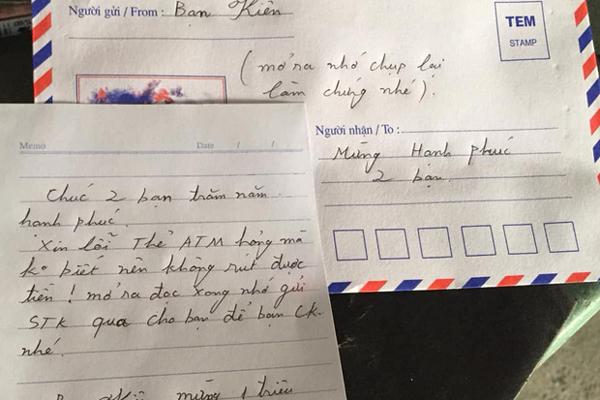 Người gửi / From : Bạn Kiên
TEM
STAMP
(mở ra nhớ chụp lại
làm chứng nhé).
Người nhận / To :
Mừng Hạnh phúc
2 bạn.
Memo Date / /
Chúc 2 bạn trăm năm
hạnh phúc.
Xin lỗi Thẻ ATM hỏng mà
ko biết nên không rút được
tiền ! mở ra đọc xong nhớ gửi
STK qua cho bạn để bạn CK
nhé.
mừng 1 triệu